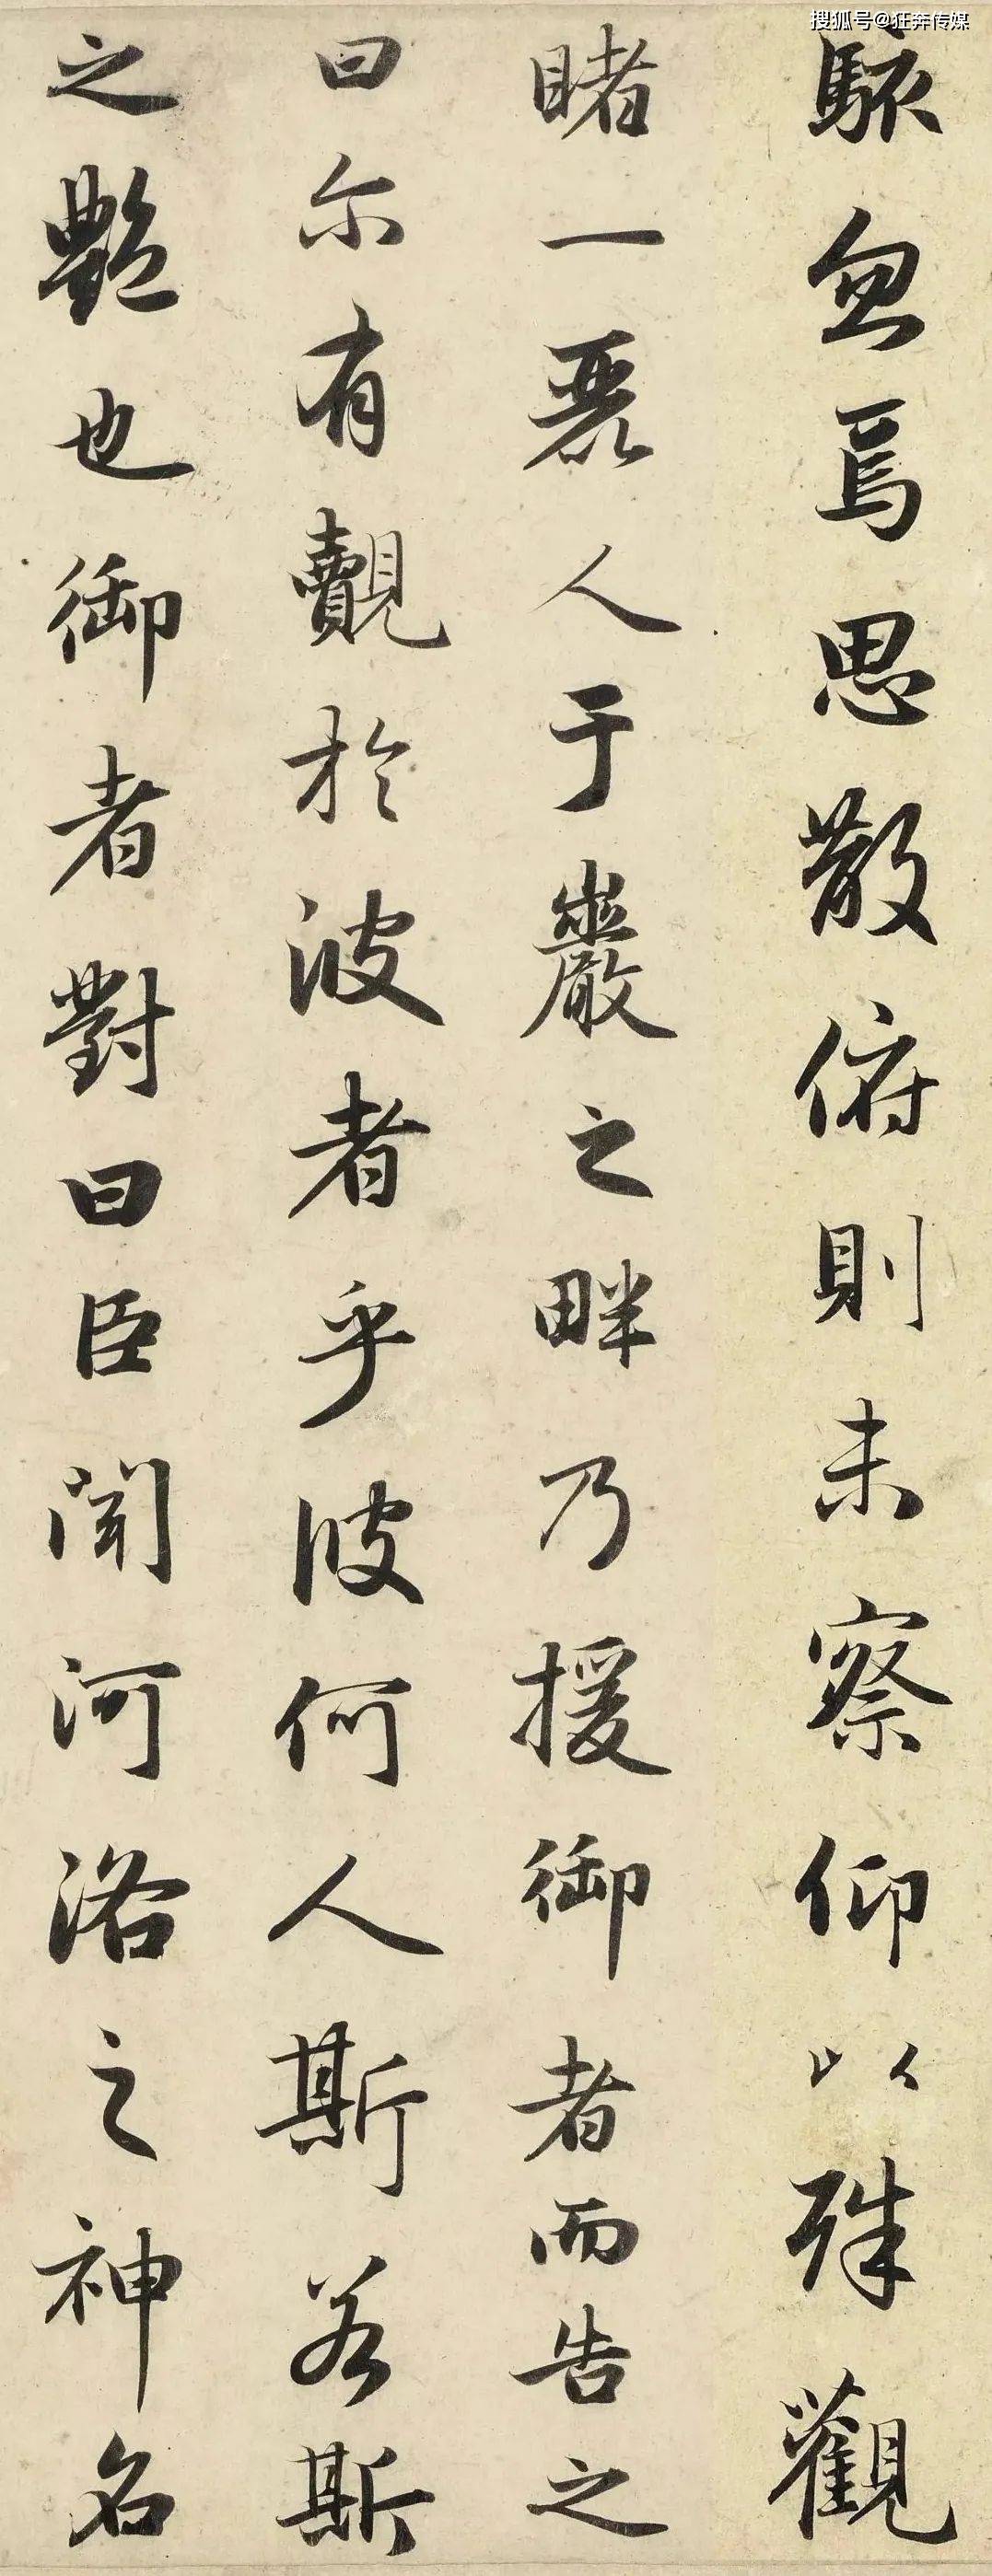 搜狐号@狂奔传媒
駭忽焉思散俯則未察仰以殊觀
睹一麗人于巖之畔乃援御者而告之
曰尒有覿於彼者乎彼何人斯若斯
之艷也御者對曰臣聞河洛之神名